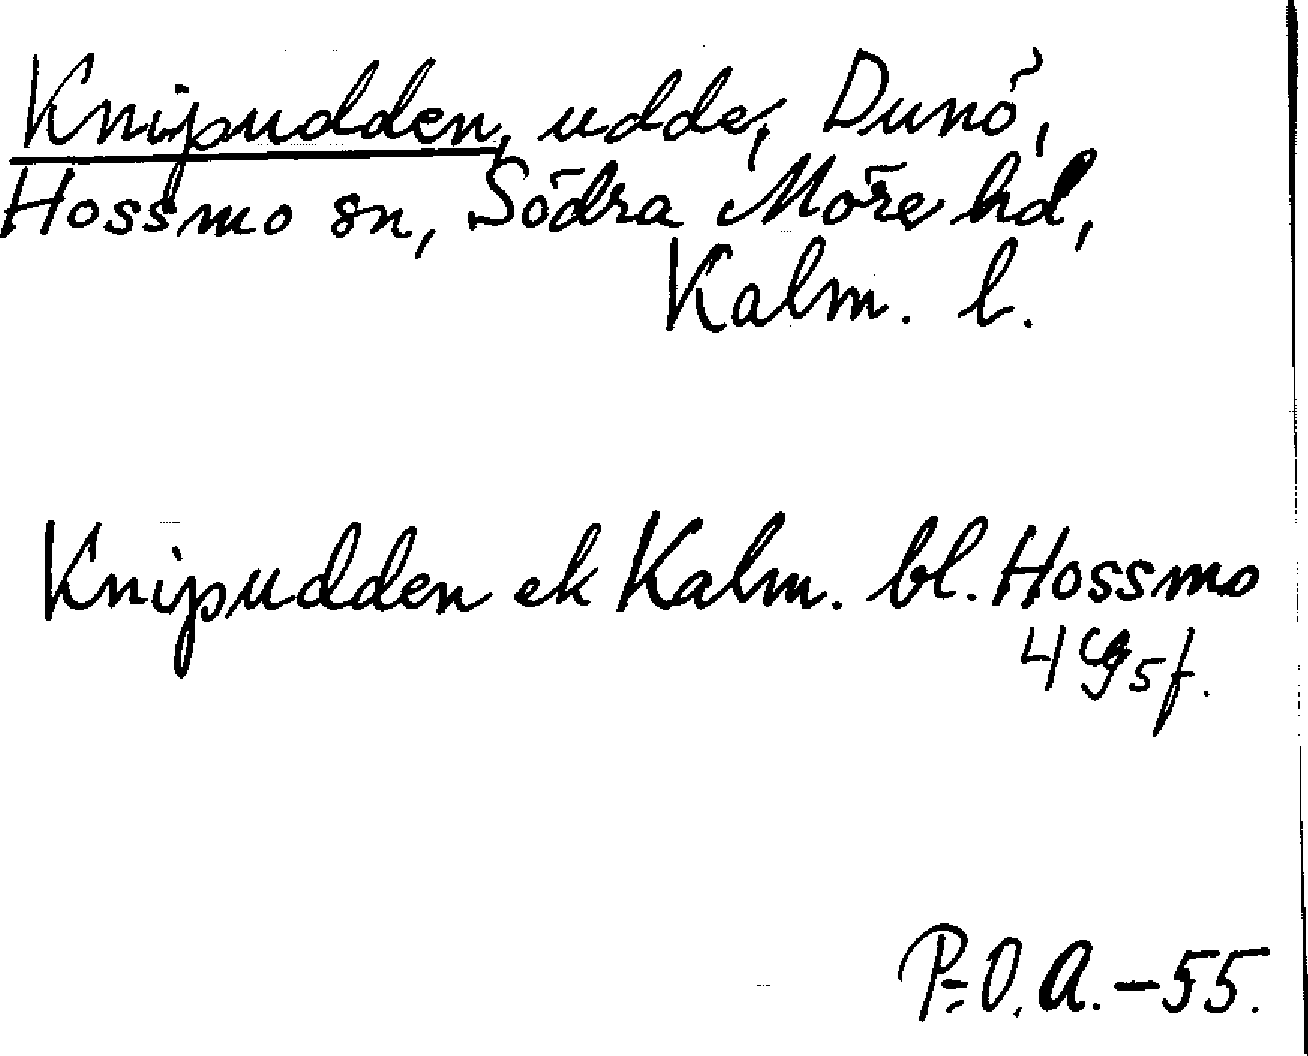 Knipudden, udde, Dunö,
Hossmo sn, Södra Möre hd,
Kalm. l.
Knipudden ek Kalm. bl. Hossmo
4 g5f.
P.-O. A. -55.